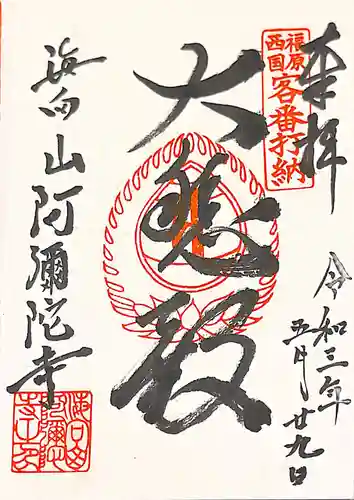 奉拝
令和三年
五月廿九日
福原
西国
客番打納
大悲殿
海向山阿彌陀寺